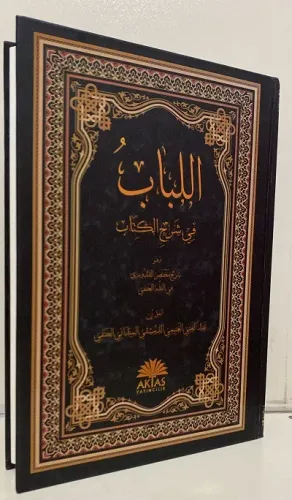 اللباب
في شرح الكتاب
وهو
شرح مختصر القدوري
في الفقه الحنفي
تأليف
عبد الغني الغنيمي الدمشقي الميداني الحنفي
AKTAŞ
YAYINCILIK